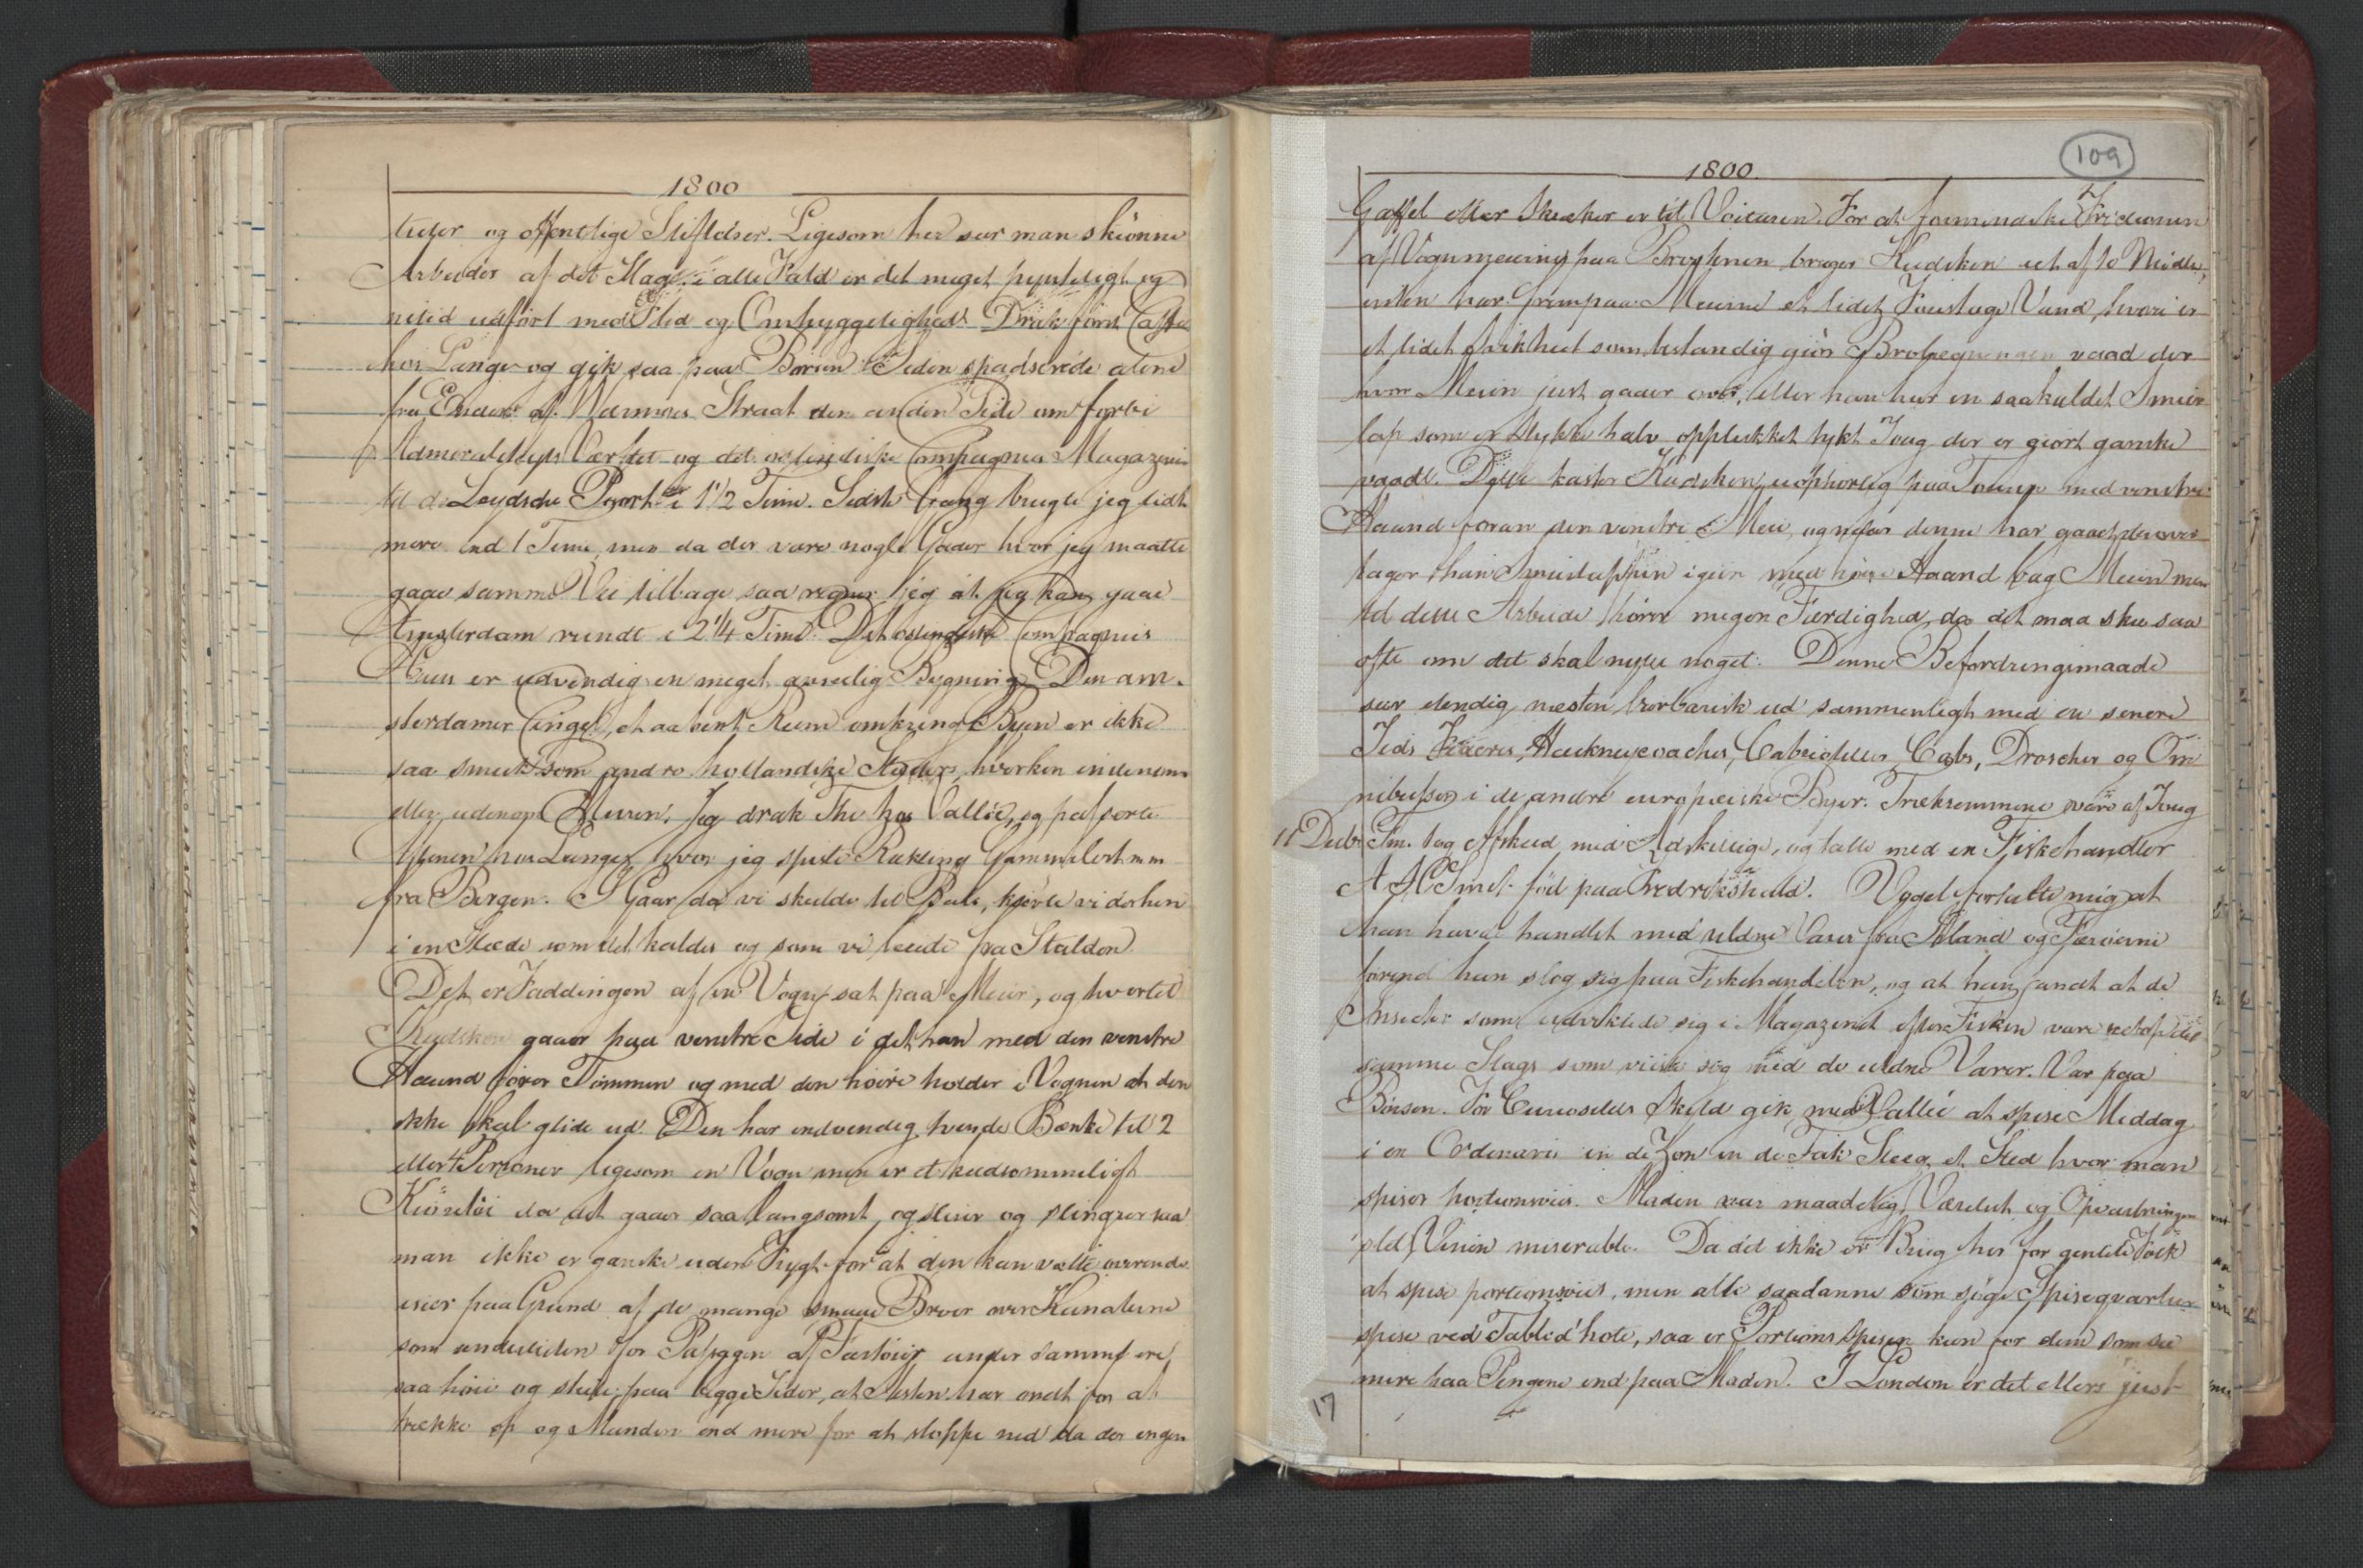 1800
tutor og offentlige Stiftelser. Ligesom her seer man skiønne
Arbeider af det Slag, i alle Fald er det meget pynteligt og
netid udført med Flid og Omhyggelighed. Drak først Caffe
hos Lange og gik saa paa Börsen. Siden spadserede alene
fra Enden af Warmoes Straat den anden Side om forbi
Admiralitets Værftet og det ostindiske Compagnies Magaziner
til de Leydsche Poort i 1 1/2 Time. Sidste Gang brugte jeg lidt
mere end 1 Time, men da der vare nogle Gader hvor jeg maatte
gaae samme Vei tilbage saa regner jeg at jeg kan gaae
Amsterdam rundt i 2 1/4 Time. Det ostindiske Compagnies
Huus er udvendig en meget anseelig Bygning. Den am-
sterdamer Cingel, et aabent Rum omkring Byen er ikke
saa smuk som andre hollandske Stæder, hverken indenom
eller udenom Muren. Jeg drak The hos Vallée, og passerte
Aftenen hos Langes, hvor jeg spiste Rækling Gammelost m m
fra Bergen. I Gaar da vi skulde til Bals, kjørte vi derhen
i en Slæde som det kaldes og som vi leiede fra Stalden.
Det er Faddingen af en Vogn, sat paa Meier, og hvortil
Kudsken gaaer paa venstre Side i det han med den venstre
Haand fører Tømmen og med den høire holder i Vognen at den
ikke skal glide ud. Den har indvendig tvende Bænke til 2
eller 4 Personer ligesom en Vogn men er et kiedsommeligt
Kiöretöi da det gaaer saa langsomt, og slenger og slingrer saa
man ikke er ganske uden Frygt for at den kan vælte overende
især paa Grund af de mange smaae Broer over Kanalerne
som undertiden for Passagen af Fartöier under samme ere
saa höie og steile paa begge Sider, at Hesten har ondt for at
trække op og Manden end mere for at stoppe ned da der ingen
109
1800.
Gaffel eller Skæker er til Voituren. For at formindske Frictionen
af Vognmeierne paa Broestenen bruger Kudsken eet af to Midler,
enten har han paa Meierne et lidet Foustage Vand, hvori er
et lidet Hul som bestandig giör Brolægningen vaad der
hvor Meien just gaaer over, eller han har en saakaldet Smeer-
lap som er Stykke halv opplukket tykt Toug der er giort ganske
vaadt. Dette kaster Kudsken uophørlig paa med venstre
Haand foran den venstre Mei, og naar denne har gaaet derover
tager han Smeerlappen igien med höire Haand bag Meien men
til dette Arbeide hörer megen Færdighed, da det maa skee saa
ofte om det skal nytte noget. Denne Befordringsmaade
seer elendig næsten barbarisk ud sammenlignet med en senere
Tids Fiacres, Hackneycoaches, Cabrioletter, Cabs, Droscher og Om
nibusser i de andre europæiske Byer. Træksommene vare af Toug
11 Decbr Fm. tog Afskeed med Adskillige, og talte med en Fiskehandler
A H Smit föd paa Fredrikshald. Vogel fortalte mig at
han havde handlet med uldne Varer fra Island og Færöerne
førend han slog sig paa Fiskehandelen, og at han fandt at de
Insecter som udviklede sig i Magazinet efter Fisken vare netop det
samme Slags som viiste sig med de uldne Varer. Var paa
Börsen. For Curiositets Skyld gik med Vallée at spise Middag
i en Ordinaris in de Zon in de Steeg et Sted hvor man
spiser portionsviis. Maden var maadelig, Værelset og Opvartningen
slet, Vinen miserable. Da det ikke er Brug her for gentile Folk
at spise portionsviis, men alle saadanne som søge Spiseqvarterer
spise ved Table d'hote, saa er Portions Spisen kun for dem som see
mere paa Pengene end paa Maden. I London er det ellers just
17